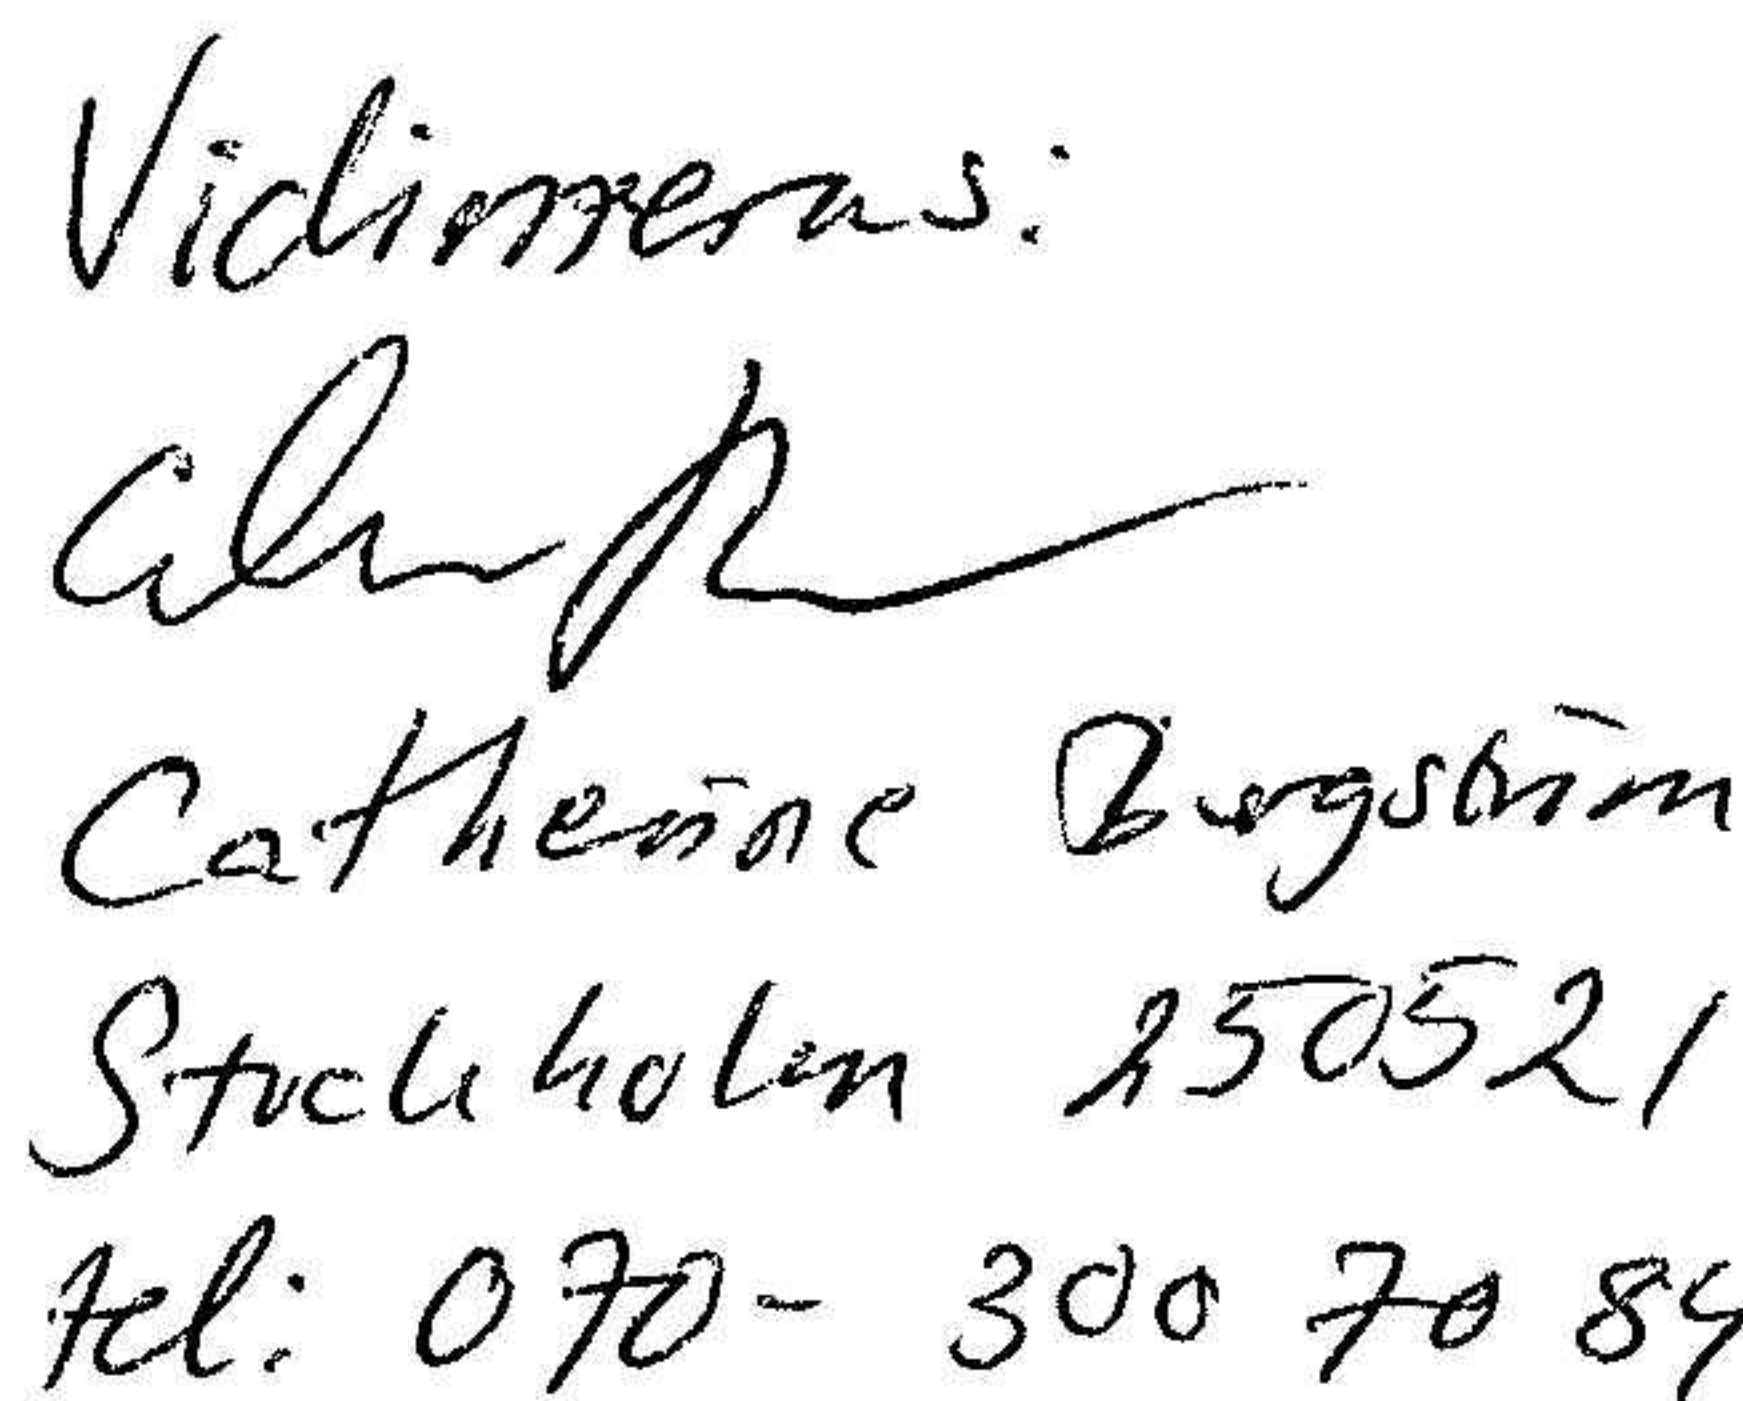 Vidimeras:
Catherine Bergström
Stockholm 250521
tel: 070-300 70 84